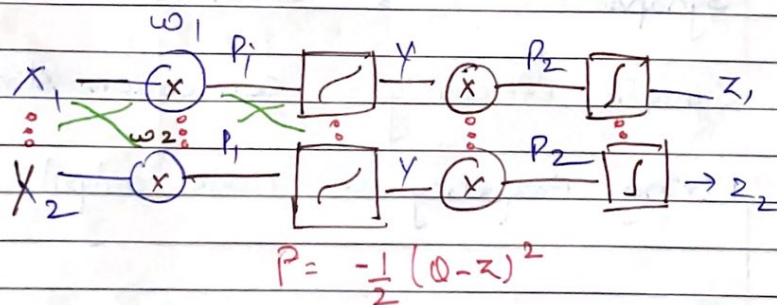 ω1
X1 × P1 Y × P2 ∫ Z1
ω2
X2 × P1 Y × P2 ∫ → Z2
P = -1/2 (O-Z)²